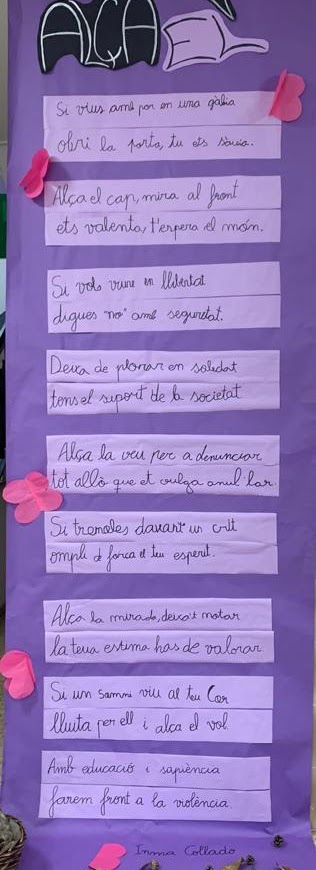 ALÇA EL
Si vius amb por en una gàbia
obri la porta, tu ets sàvia.
Alça el cap, mira al front
ets valenta, t'espera el món.
Si vols viure en llibertat
digues "no" amb seguretat.
Deixa de plorar en soledat
tens el suport de la societat
Alça la veu per a denunciar
tot allò que et vulga anul·lar.
Si tremoles davant un crit
ompli de força el teu esperit.
Alça la mirada, deixa't notar
la teua estima has de valorar
Si un somni viu al teu Cor
lluita per ell i alça el vol.
Amb educació i sapiència
farem front a la violència.
Inma Collado